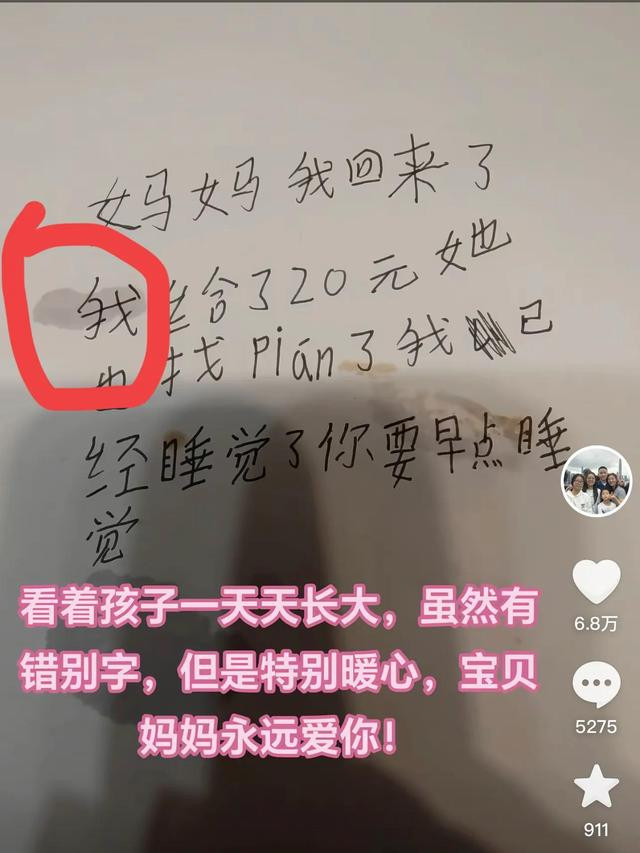 妈妈我回来了
我给了20元她
也找pián了我已
经睡觉了你要早点睡
觉
看着孩子一天天长大，虽然有
错别字，但是特别暖心，宝贝
妈妈永远爱你！
6.8万
5275
911